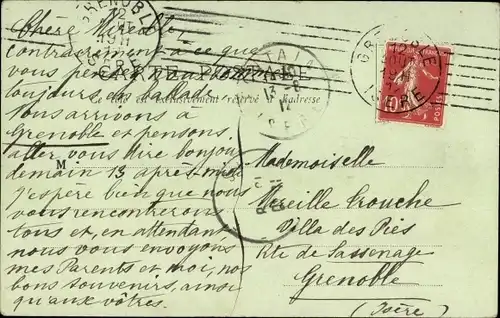 Chère Mireille
Contrairement à ce que
vous pensez nous sommes
toujours en ballade
Nous arrivons à
Grenoble et pensons
aller vous dire bonjour
demain 13 après-midi
J'espère bien que nous
vous rencontrerons
tous et, en attendant
nous vous envoyons
mes Parents et moi, nos
bons souvenirs, ainsi
qu'aux vôtres.
CARTE POSTALE
Le côté est exclusivement réservé à l'adresse
M
Mademoiselle
Mireille Crouche
Villa des Pies
Rte de Sassenage
Grenoble
(Isère)
GRENOBLE
ISERE
10
POSTES
GRENOBLE
12
ISERE
13-8
12